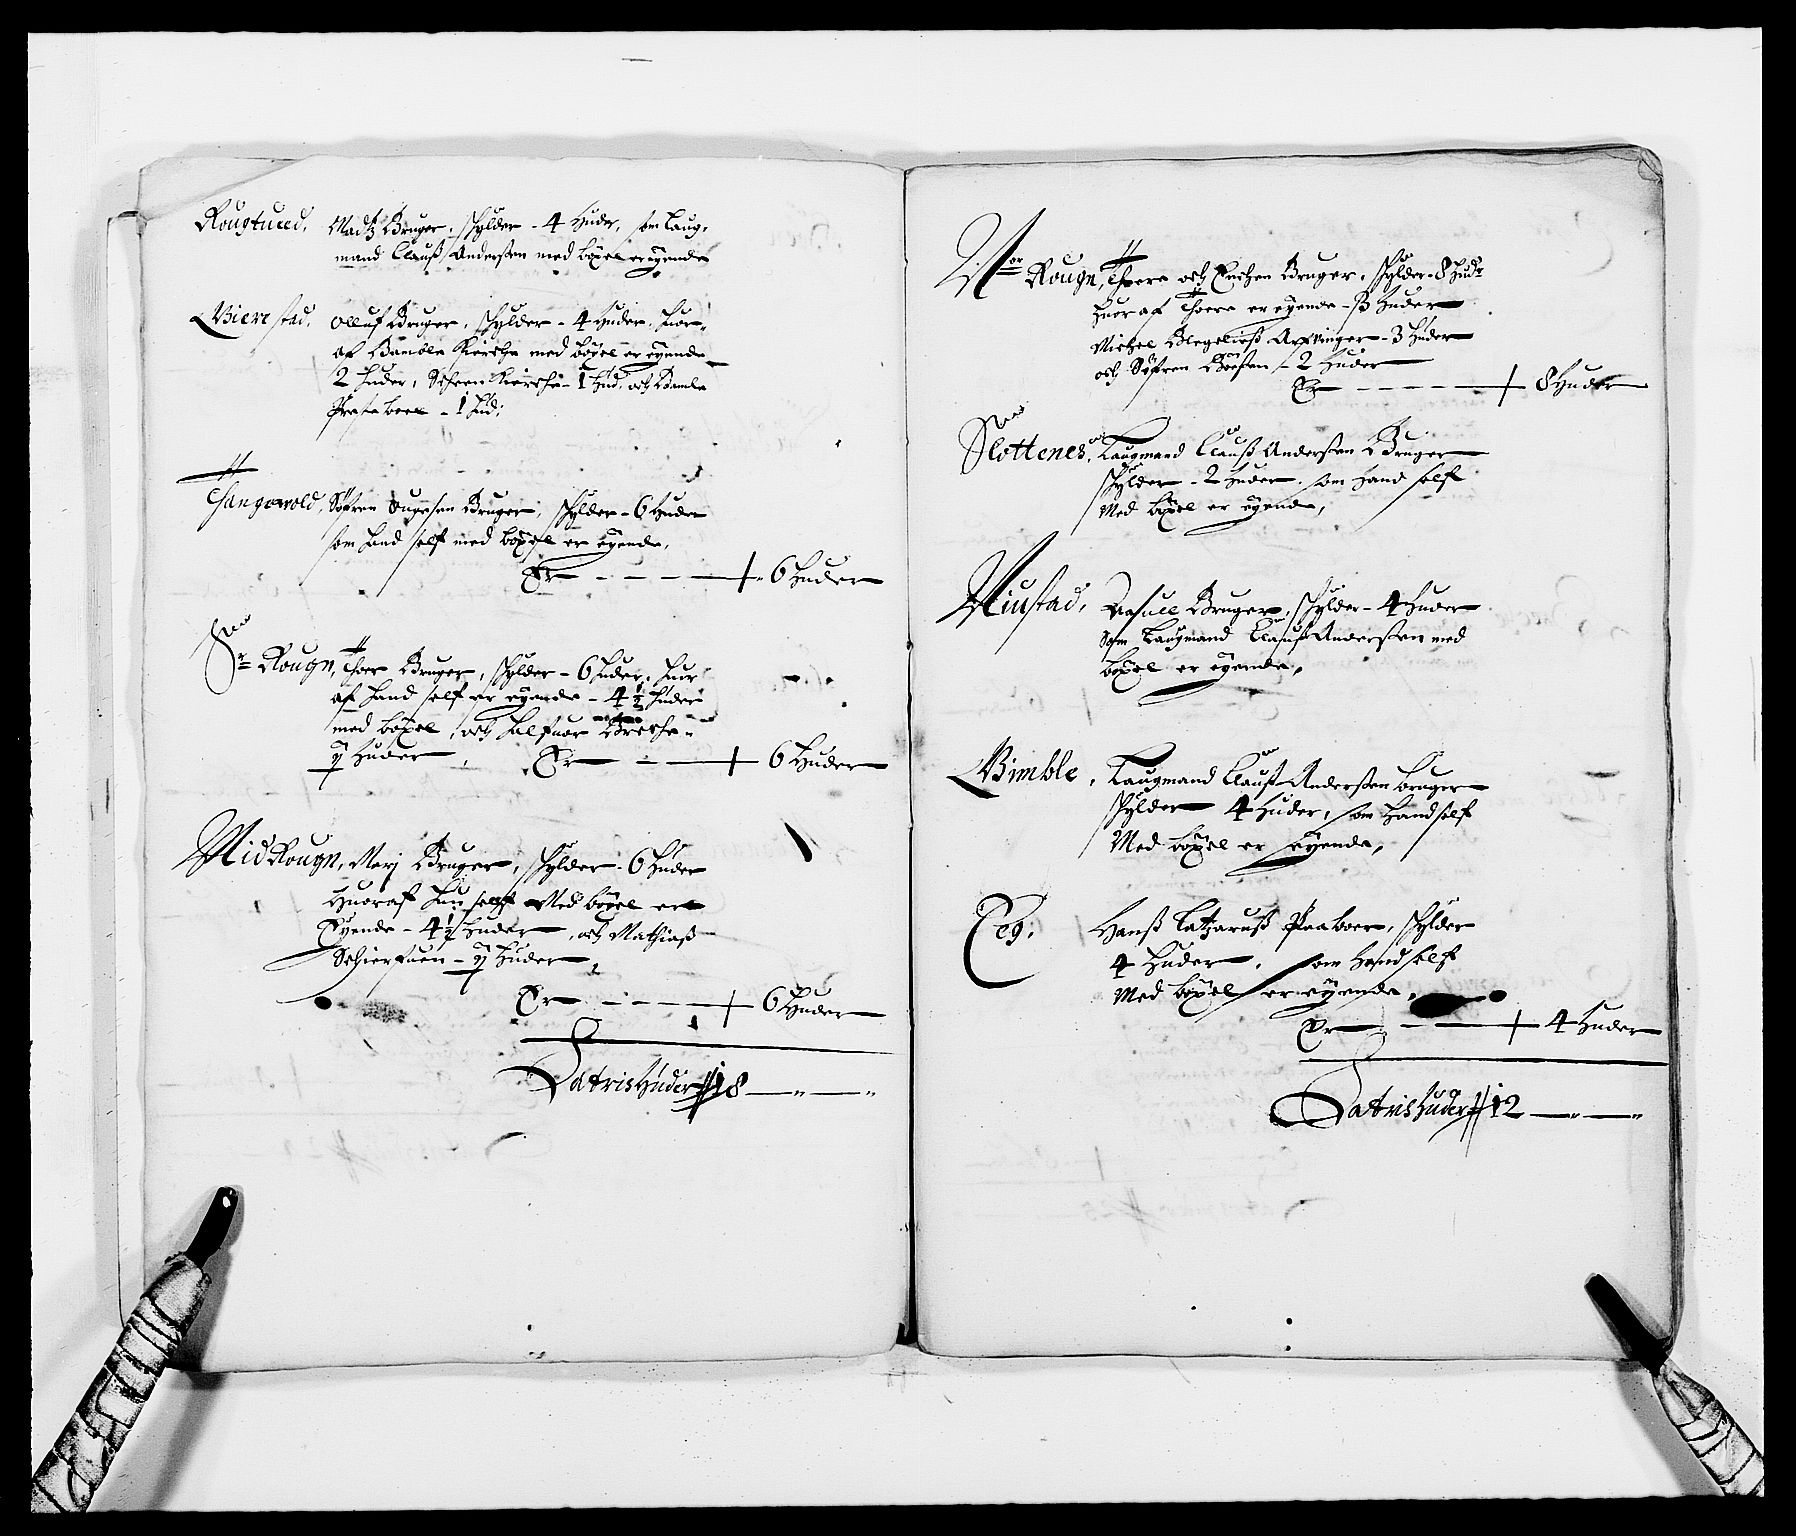 Rougtued, Madtz Bruger, schylder - 4 Huder, som Laug-
mand Clauß Anderßen med böxel er eyende
Bierestad, Olluf Bruger, schylder - 4 Huder, huor-
af Bamble Kierche med böxel er eyende
2 Huder, Scheen Kierche - 1 Hud, och Bamble
Præsteboel - 1 Hud;
Tangvold, Söfren Bruger, schylder - 6 Huder
som hand self med böxel er eyende,
Er - - - - 6 Huder
Sr Rougn, Thor Bruger, schylder - 6 Huder, huor
af hand self er eyende - 4½ Huder
med böxel, och Halfuor
Huder, Er - - 6 Huder
Mid Rougn, Marj Bruger, schylder - 6 Huder
Huoraf hun selff Med böxel er
Eyende - 4½ Huder, och Mathiaß
Schierfuen - Huder,
Er - - - 6 Huder
Latris Huder # 18 — „ — „
Nor Rougn, Thore och Bruger, schylder - 8 Hudr
Huor af Thore er eyende - 3 Huder
Michel Arfvinger - 3 Huder
och Söfren - 2 Huder
Er - - - - 8 Huder
Slottenes, Laugmand Clauß Anderßen Bruger
schylder - 2 Huder, som hand self
Med böxel er eyende,
Niustad, Bruger, schylder - 4 Huder
Som Laugmand Clauß Anderßen med
böxel er eyende,
Bimble, Laugmand Clauß Anderßen bruger
schylder 4 Huder, som Hand self
Med böxel er eyende,
Eeg, Hanß Latzaruß Paaboer, schylder
4 Huder, som Hand self
Med böxel er eyende,
Er - - - 4 Huder
Latris Huder # 12 — „ — „